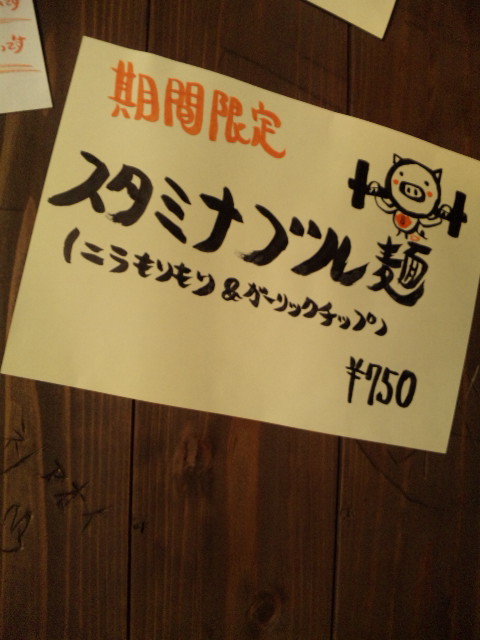 期間限定
スタミナブツル麺
(ニラもりもり&ガーリックチップ)
¥750